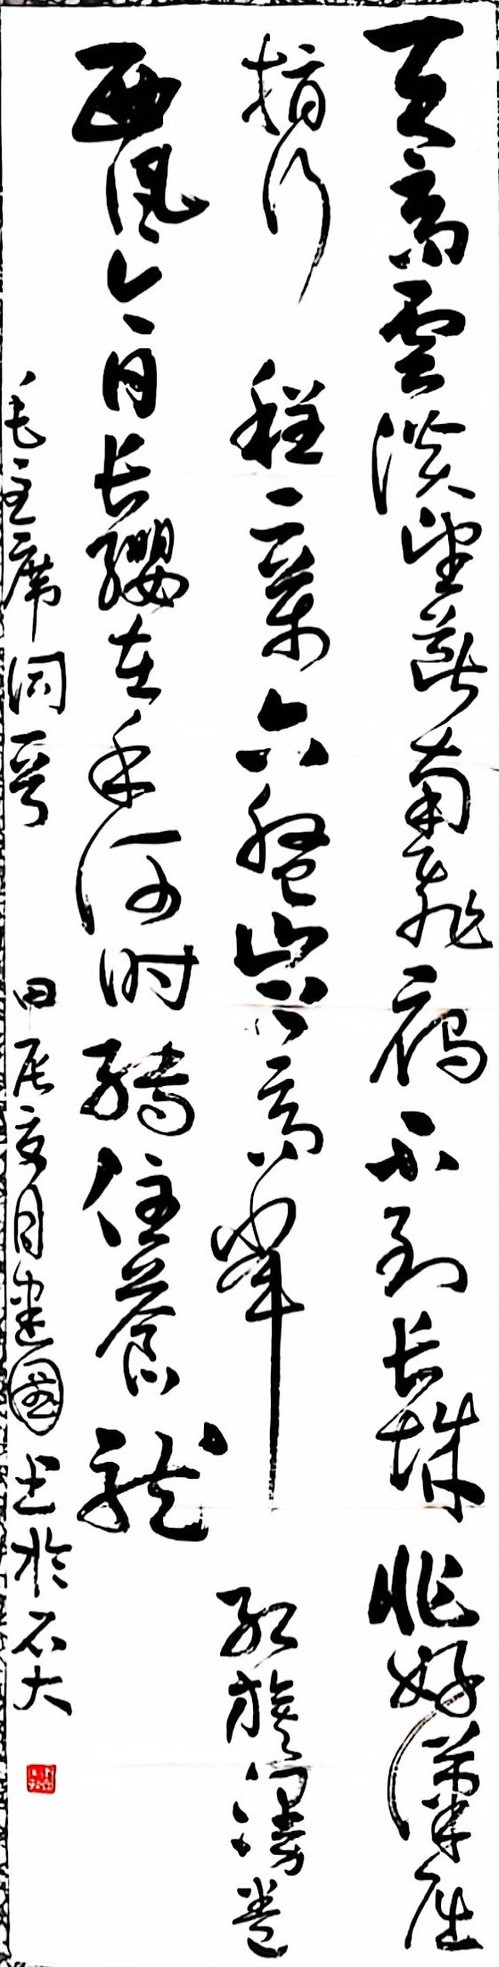 天高雲淡望斷南飛鴈不到长城非好漢屈
指行程二萬六盤山上高峰红旗漫卷
西風今日长纓在手何时縛住蒼龍
毛主席詞一首 甲辰夏月建國书於石大